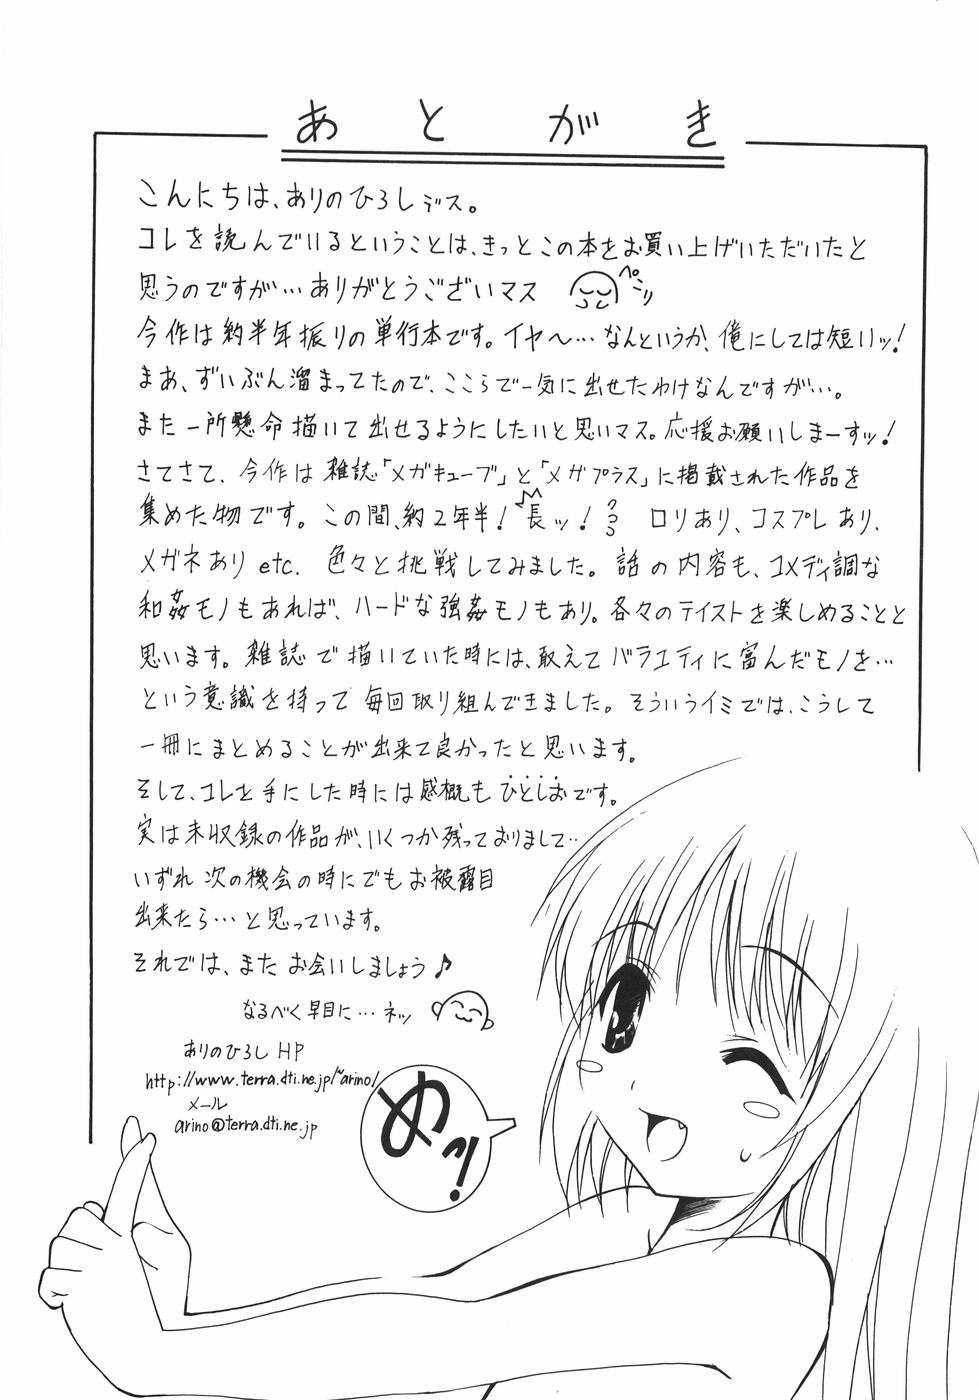 あとがき
こんにちは、ありのひろしデス。
コレを読んでいるということは、きっとこの本をお買い上げいただいたと
思うのですが…ありがとうございマス ペシッ
今作は約半年振りの単行本です。イヤ〜…なんというか、俺にしては短いッ!
まあ、ずいぶん溜まってたので、ここらで一気に出せたわけなんですが…。
また一所懸命描いて出せるようにしたいと思いマス。応援お願いしまーすッ!
さてさて、今作は雑誌「メガキューブ」と「メガプラス」に掲載された作品を
集めた物です。この間、約2年半!長ッ! ロリあり、コスプレあり、
メガネあり etc. 色々と挑戦してみました。話の内容も、コメディ調な
和姦モノもあれば、ハードな強姦モノもあり。各々のテイストを楽しめることと
思います。雑誌で描いていた時には、敢えてバラエティに富んだモノを…
という意識を持って毎回取り組んできました。そういうイミでは、こうして
一冊にまとめることが出来て良かったと思います。
そして、コレを手にした時には感概もひとしおです。
実は未収録の作品が、いくつか残っておりまして…
いずれ次の機会の時にでもお被露目
出来たら…と思っています。
それでは、またお会いしましょう♪
なるべく早目に…ネッ
ありのひろし HP
http://www.terra.dti.ne.jp/~arino/
メール
arino@terra.dti.ne.jp
めっ!